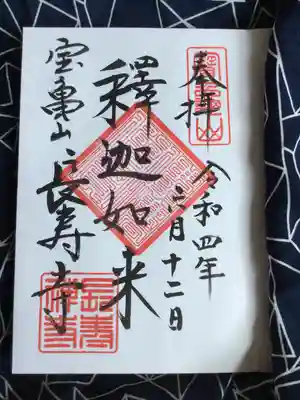 奉拝
令和四年
六月十二日
釋迦如来
宝亀山
長寿寺